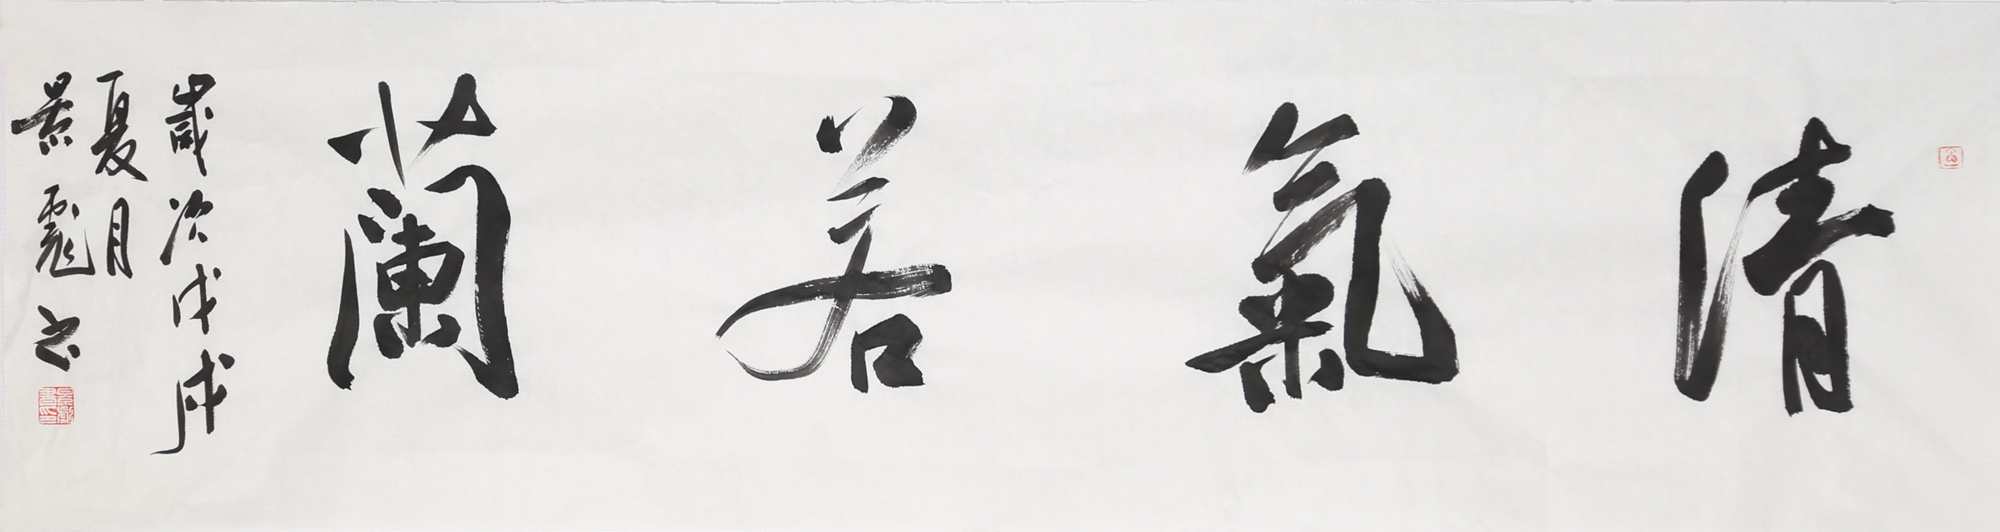 清氣若蘭
歲次戊戌
夏月
景彪书